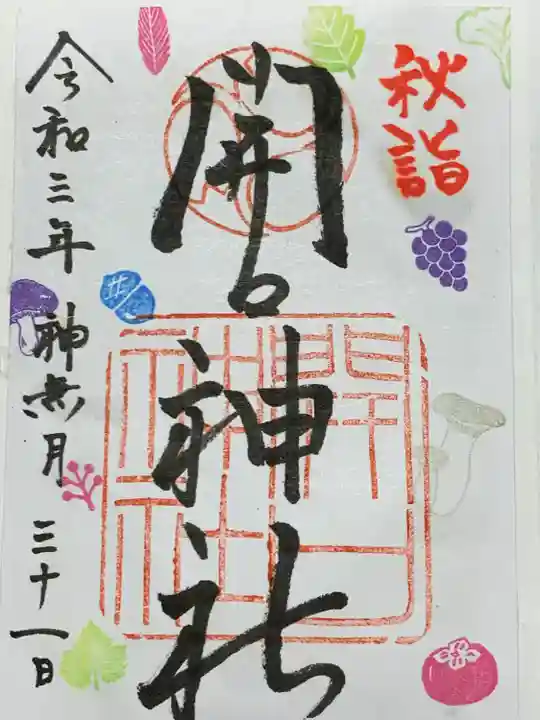 秋詣
開口神社
令和三年 神無月 三十一日
開口神社